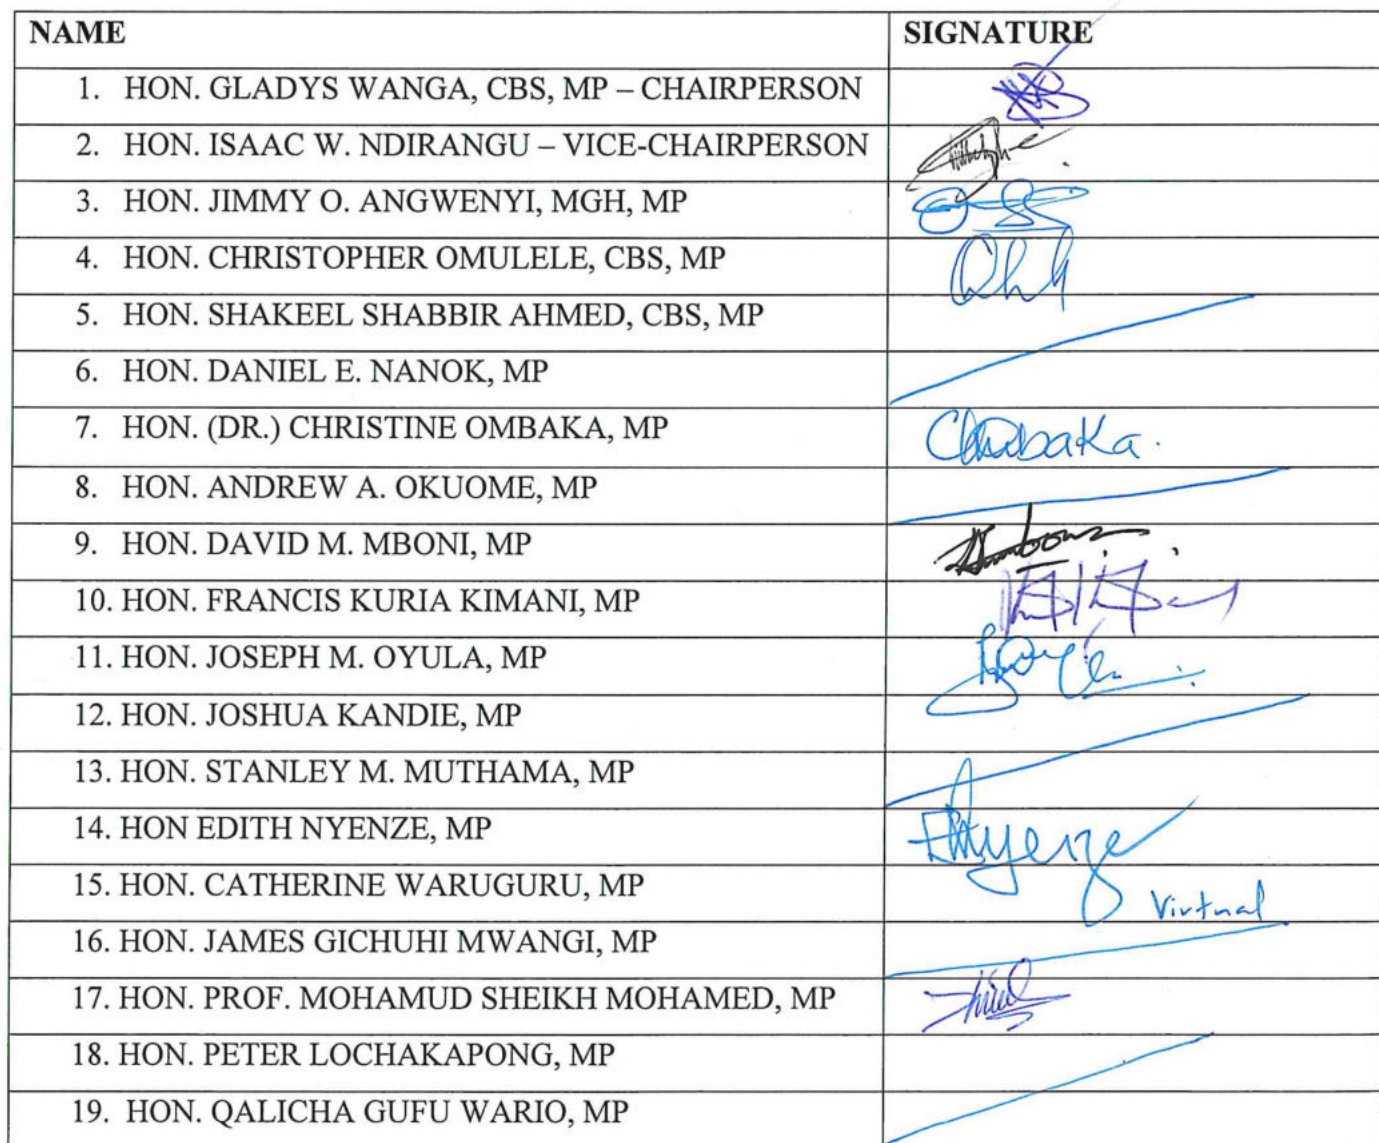 NAME SIGNATURE
1. HON. GLADYS WANGA, CBS, MP – CHAIRPERSON
2. HON. ISAAC W. NDIRANGU – VICE-CHAIRPERSON
3. HON. JIMMY O. ANGWENYI, MGH, MP
4. HON. CHRISTOPHER OMULELE, CBS, MP
5. HON. SHAKEEL SHABBIR AHMED, CBS, MP
6. HON. DANIEL E. NANOK, MP
7. HON. (DR.) CHRISTINE OMBAKA, MP
8. HON. ANDREW A. OKUOME, MP
9. HON. DAVID M. MBONI, MP
10. HON. FRANCIS KURIA KIMANI, MP
11. HON. JOSEPH M. OYULA, MP
12. HON. JOSHUA KANDIE, MP
13. HON. STANLEY M. MUTHAMA, MP
14. HON EDITH NYENZE, MP
15. HON. CATHERINE WARUGURU, MP Virtual
16. HON. JAMES GICHUHI MWANGI, MP
17. HON. PROF. MOHAMUD SHEIKH MOHAMED, MP
18. HON. PETER LOCHAKAPONG, MP
19. HON. QALICHA GUFU WARIO, MP